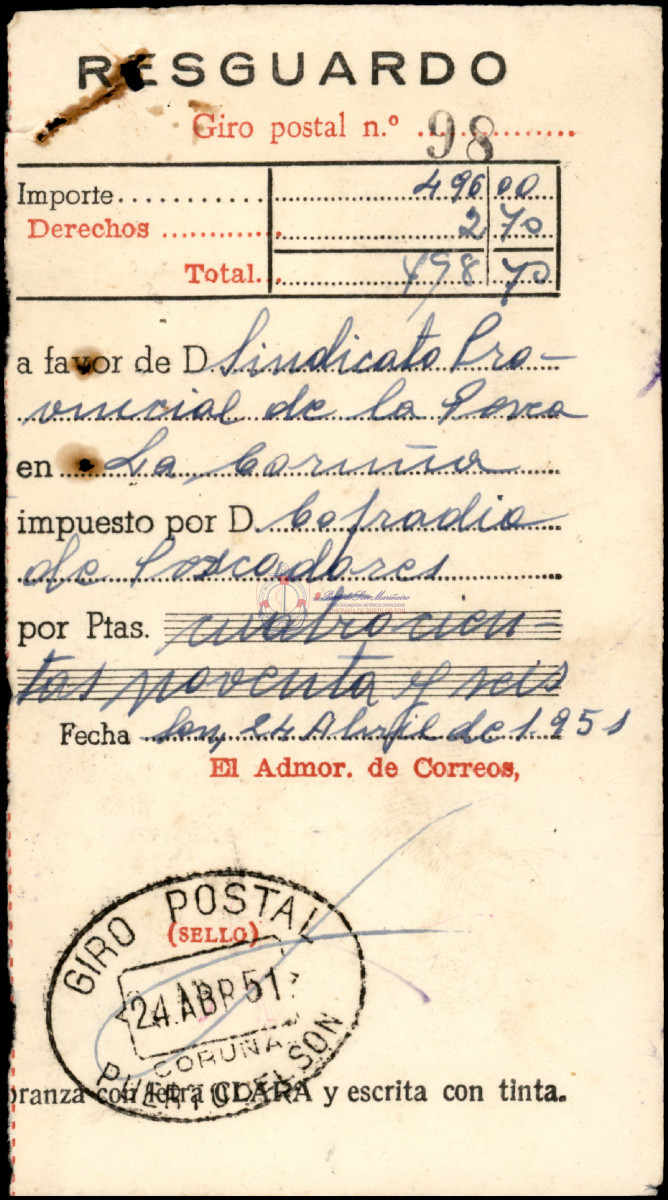 RESGUARDO
Giro postal n.º 98
Importe 496 00
Derechos 2 70
Total 498 70
a favor de D. Sindicato Pro-
vincial de la Pesca
en La Coruña
impuesto por D. Cofradia
de Pescadores
por Ptas. cuatrocien-
tas noventa y seis
Fecha Son, 24 Abril de 1.951
El Admor. de Correos,
GIRO POSTAL
(SELLO)
24 ABR 51
CORUÑA
PUERTO DEL SON
branza con letra CLARA y escrita con tinta.